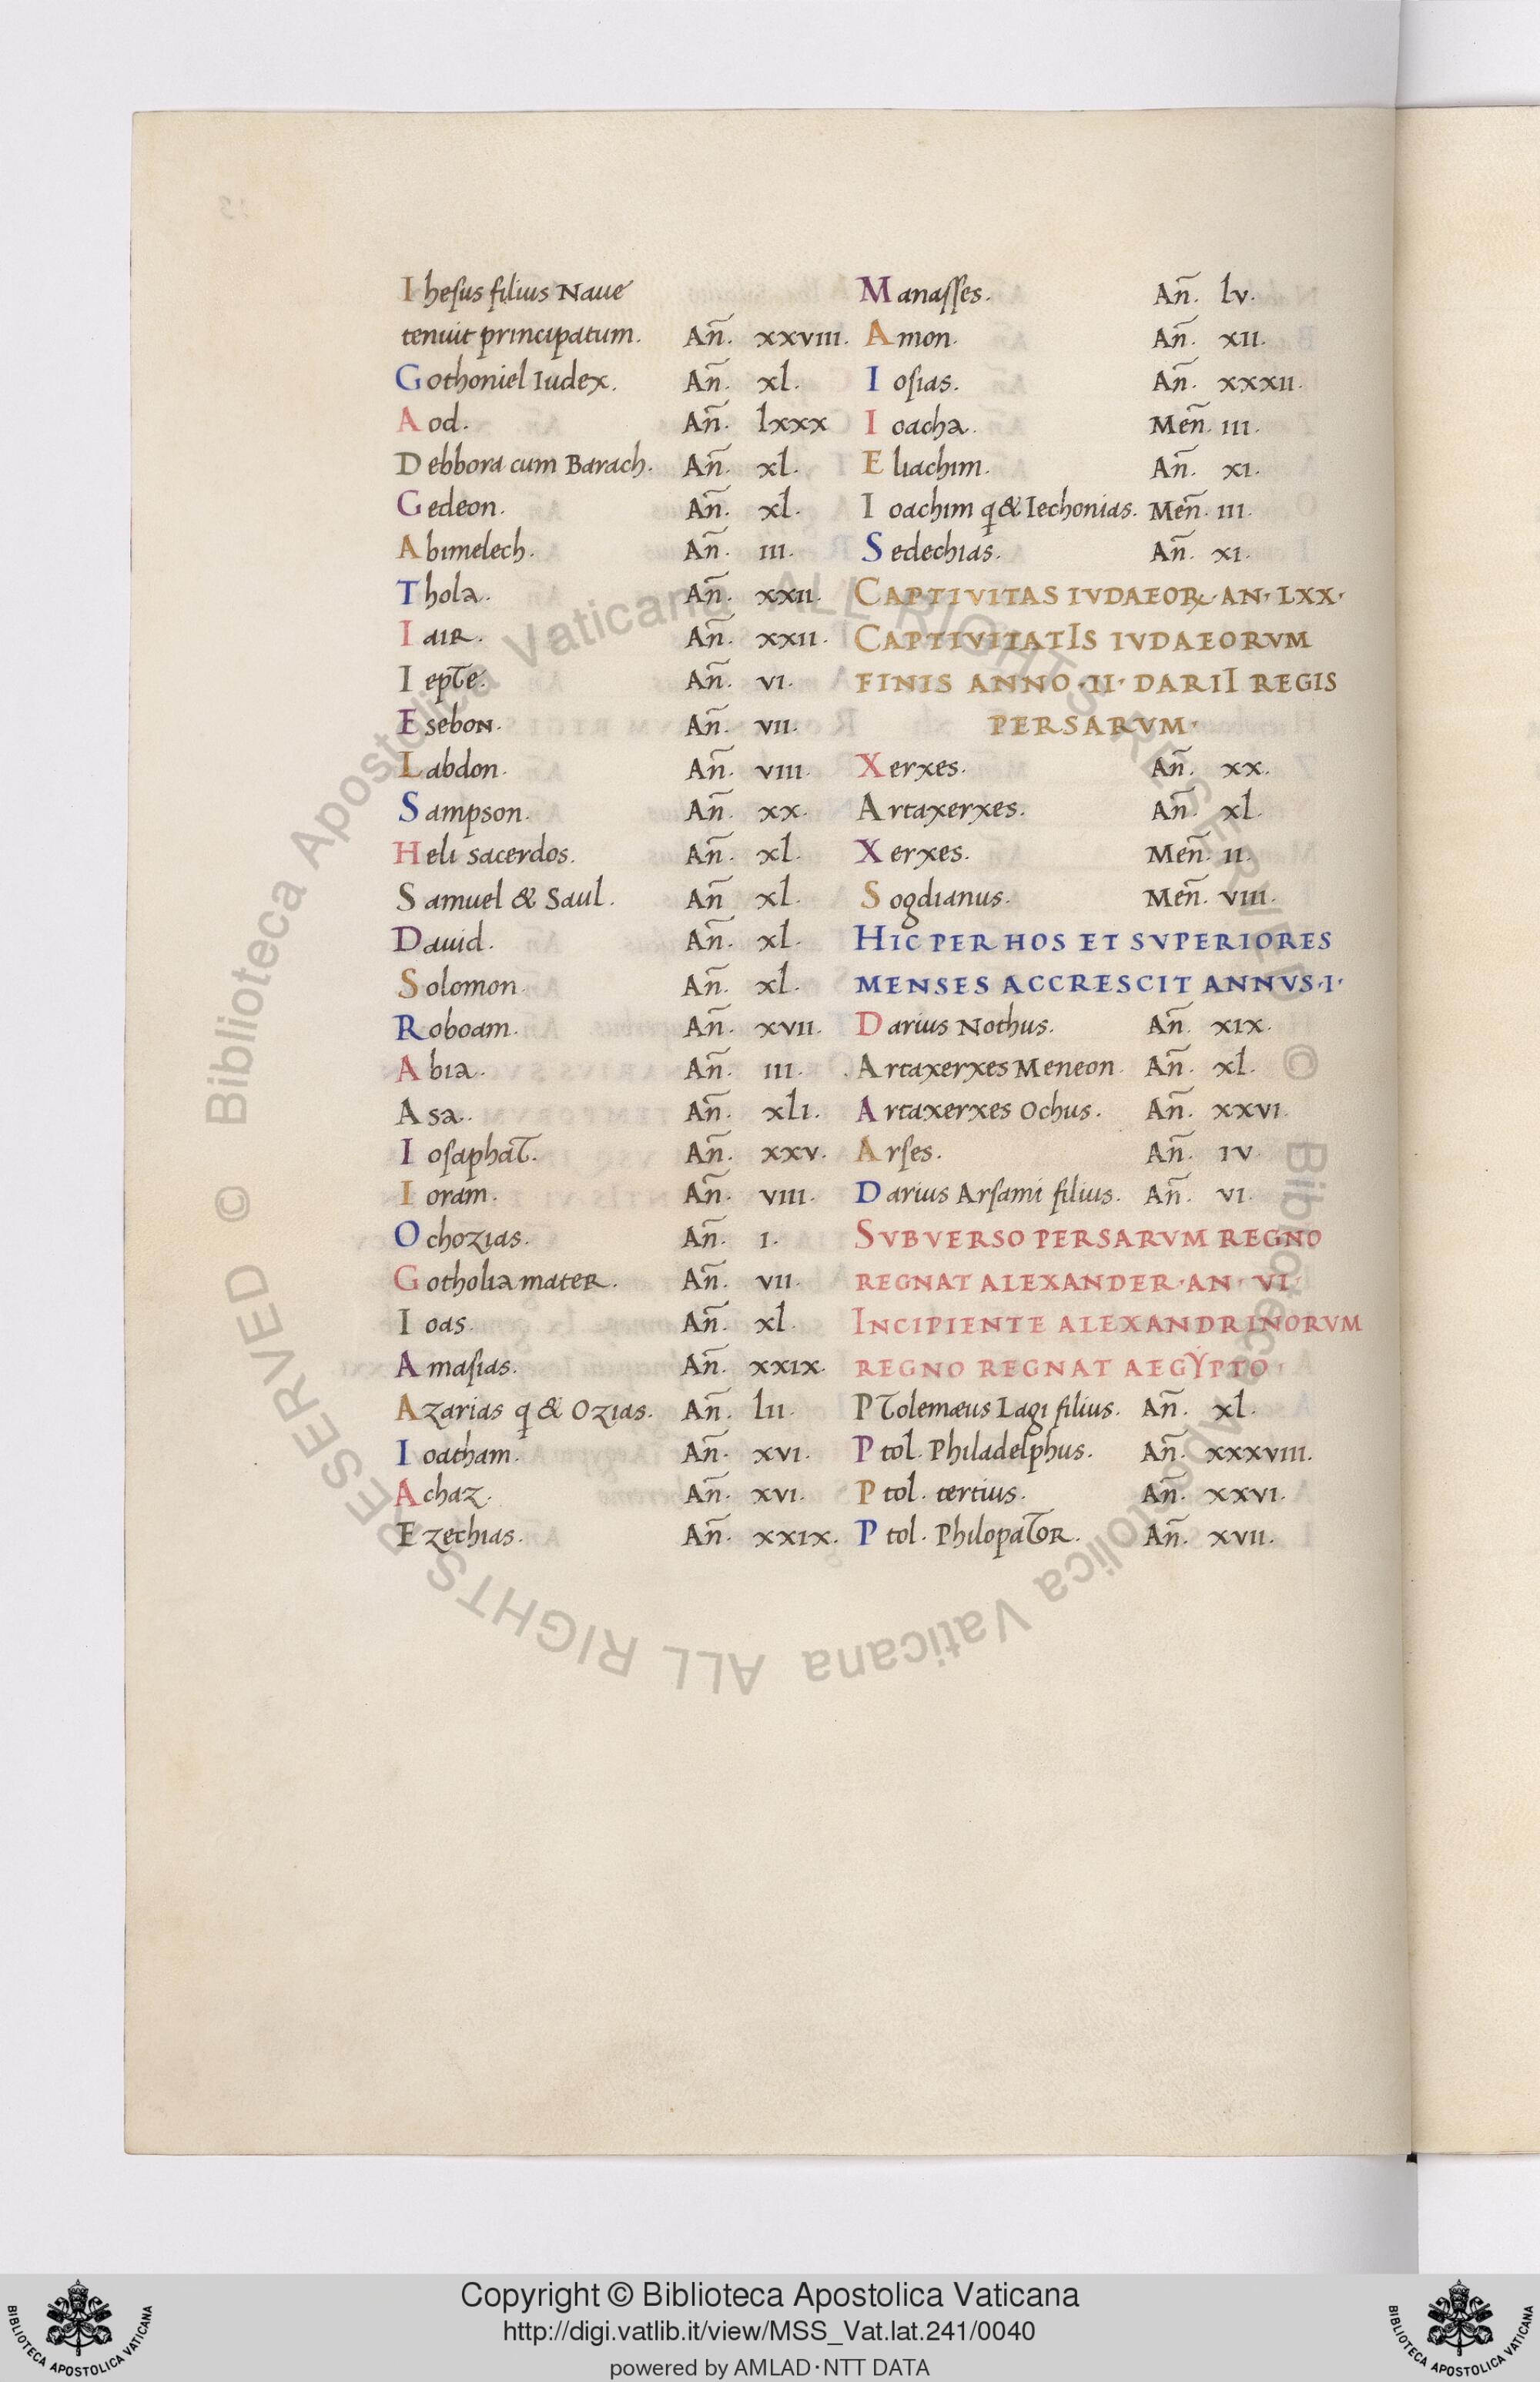 Ihesus filius Naue
tenuit principatum. Añ. xxviii.
Gothoniel Iudex. Añ. xl.
Aod. Añ. lxxx
Debbora cum Barach. Añ. xl.
Gedeon. Añ. xl.
Abimelech. Añ. iii.
Thola. Añ. xxii.
Iair. Añ. xxii.
Iepte. Añ. vi.
Esebon. Añ. vii.
Labdon. Añ. viii.
Sampson. Añ. xx.
Heli sacerdos. Añ. xl.
Samuel & Saul. Añ xl.
Dauid. Añ. xl.
Solomon. Añ. xl.
Roboam. Añ. xvii.
Abia. Añ. iii.
Asa. Añ. xli.
Iosaphat. Añ. xxv.
Ioram. Añ. viii.
Ochozias. Añ. i.
Gotholia mater. Añ. vii.
Ioas. Añ. xl.
Amasias. Añ. xxix.
Azarias q & Ozias. Añ. lii.
Ioatham. Añ. xvi.
Achaz. Añ. xvi.
Ezechias. Añ. xxix.
Manasses. Añ. lv.
Amon. Añ. xii.
Iosias. Añ. xxxii.
Ioacha. Meñ. iii.
Eliachim. Añ. xi.
Ioachim q & Iechonias. Meñ. iii.
Sedechias. Añ. xi.
CAPTIVITAS IVDAEORꝝ·AN·LXX·
CAPTIVITATIS IVDAEORVM
FINIS ANNO·II·DARII REGIS
PERSARVM·
Xerxes. Añ. xx.
Artaxerxes. Añ. xl.
Xerxes. Meñ. ii.
Sogdianus. Meñ. viii.
HIC PER HOS ET SVPERIORES
MENSES ACCRESCIT ANNVS·I·
Darius Nothus. Añ. xix.
Artaxerxes Meneon. Añ. xl.
Artaxerxes Ochus. Añ. xxvi.
Arses. Añ. iv
Darius Arsami filius. Añ. vi.
SVBVERSO PERSARVM REGNO
REGNAT ALEXANDER·AN·VI·
INCIPIENTE ALEXANDRINORVM
REGNO REGNAT AEGYPTO·
Ptolemæus Lagi filius. Añ. xl.
Ptol. Philadelphus. Añ. xxxviii.
Ptol. tertius. Añ. xxvi.
Ptol. Philopator. Añ. xvii.
© Biblioteca Apostolica Vaticana ALL RIGHTS RESERVED
© Biblioteca Apostolica Vaticana ALL RIGHTS RESERVED
Copyright © Biblioteca Apostolica Vaticana
http://digi.vatlib.it/view/MSS_Vat.lat.241/0040
powered by AMLAD·NTT DATA
BIBLIOTECA APOSTOLICA VATICANA
BIBLIOTECA APOSTOLICA VATICANA